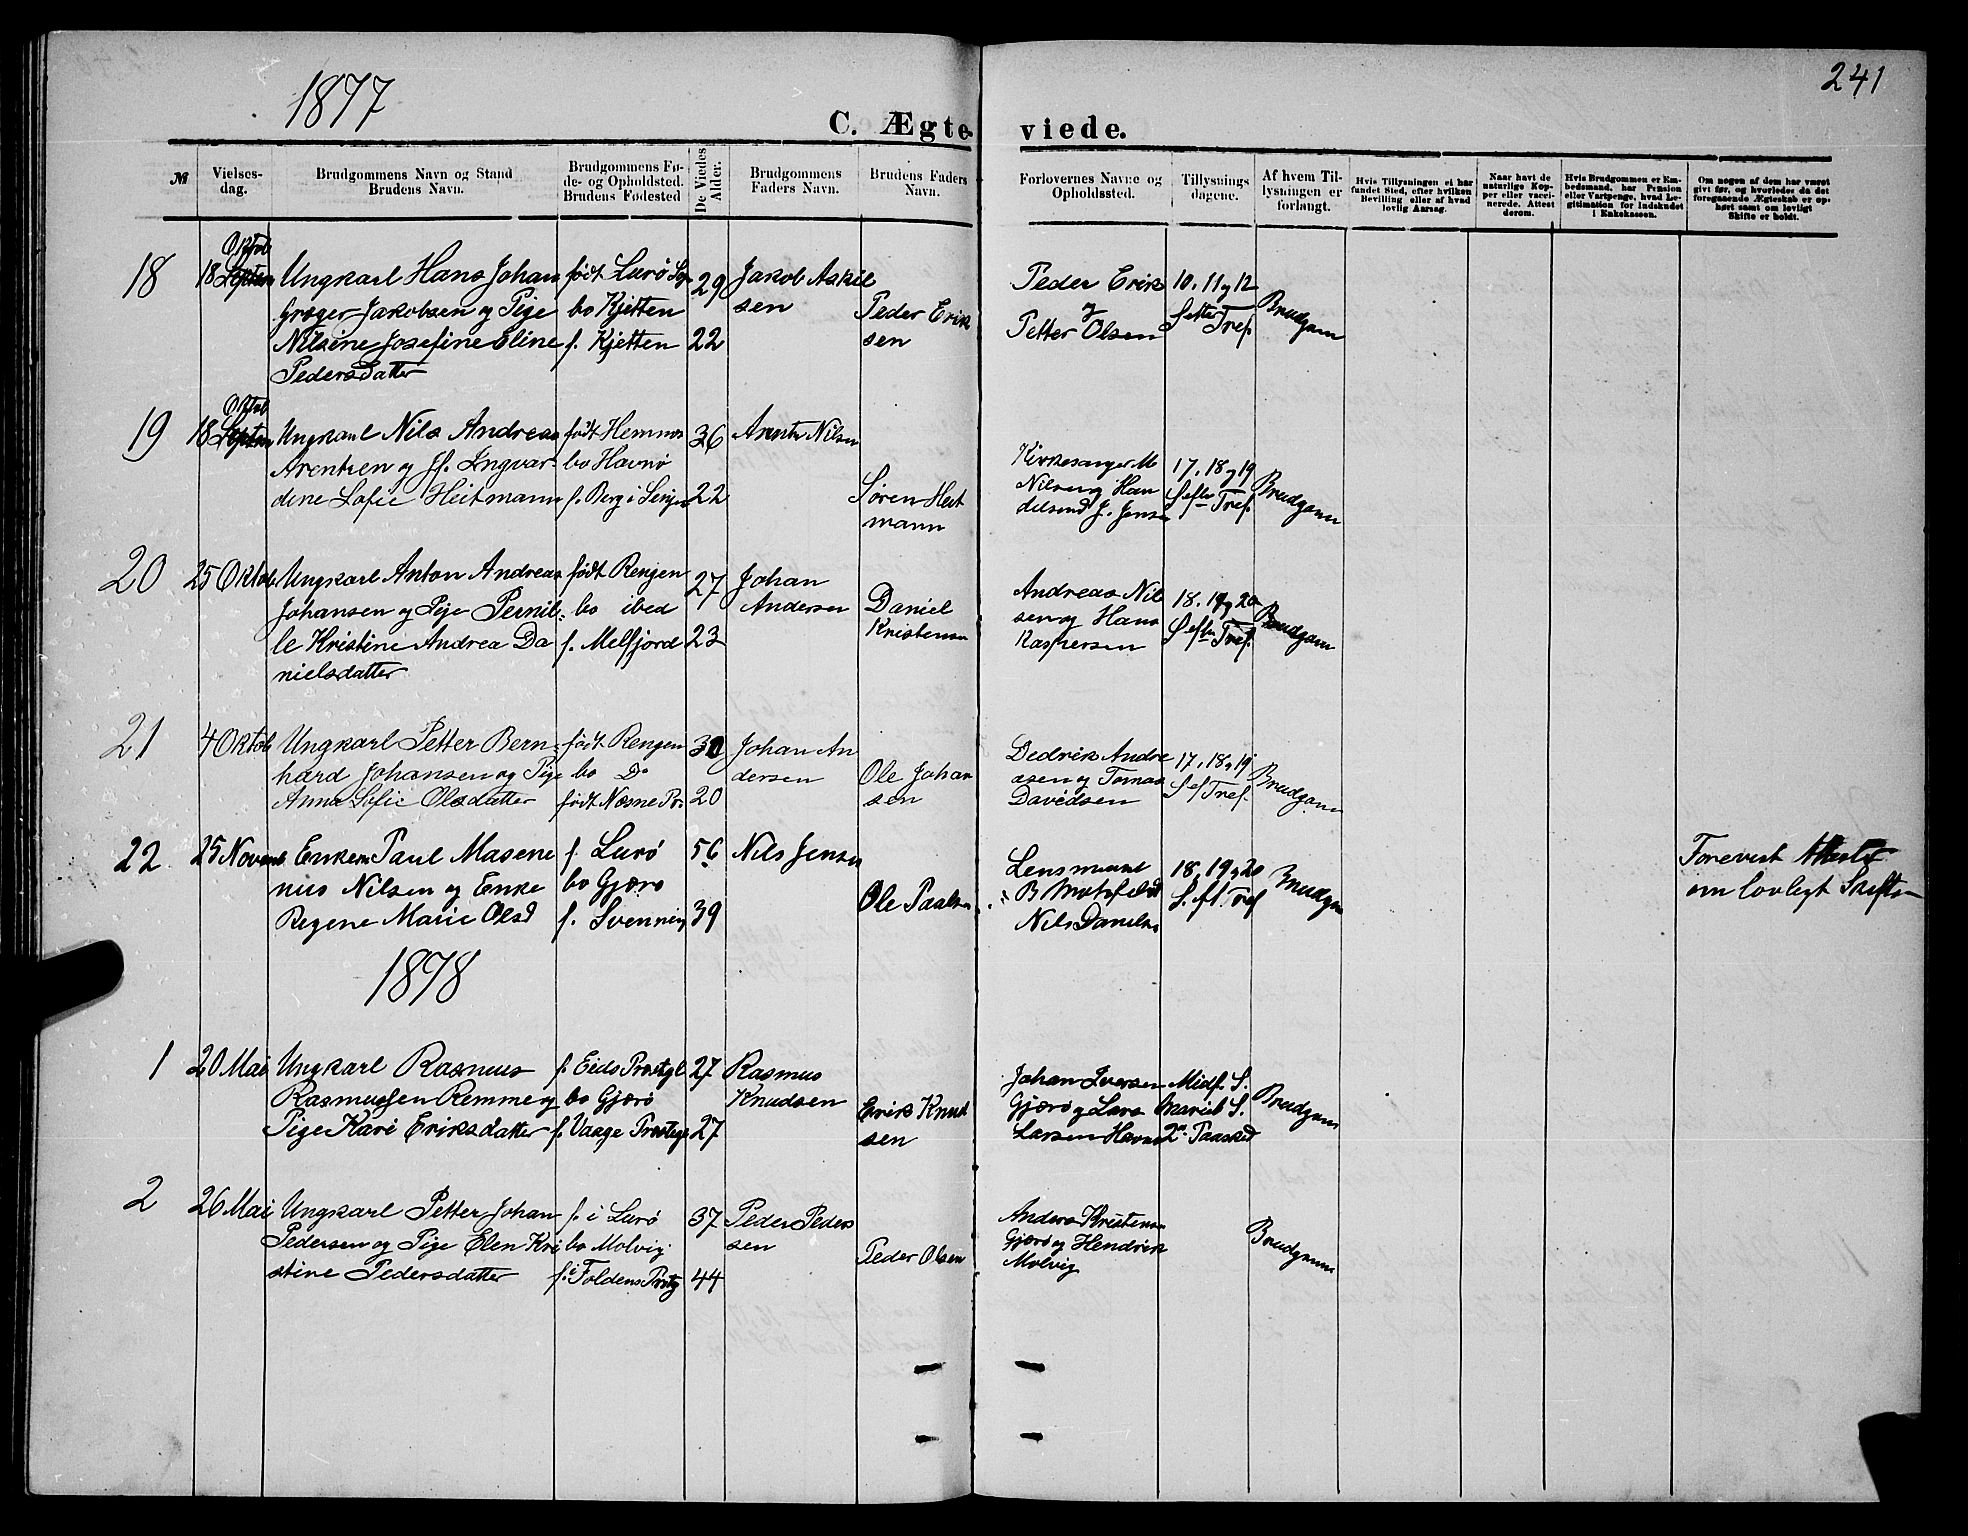 1877
241
C. Ægte viede.
№
Vielses-
dag.
Brudgommens Navn og Stand
Brudens Navn.
Brudgommens Fø-
de- og Opholdsted.
Brudens Fødested
De Viedes
Alder.
Brudgommens
Faders Navn.
Brudens Faders
Navn.
Forlovernes Navne og
Opholdssted.
Tillysnings
dagene.
Af hvem Til-
lysningen er
forlangt.
Hvis Tillysningen ei har
fundet Sted, efter hvilken
Bevilling eller af hvad
lovlig Aarsag.
Naar havt de
naturlige Kop-
per eller vacci-
nerede. Attest
derom.
Hvis Brudgommen er Em-
bedsmand, har Pension
eller Vartpenge, hvad Le-
gitimation for Indskudet
i Enkekassen.
Om nogen af dem har været
givt før, og hvorledes da det
foregaaende Ægteskab er op-
hørt samt om lovligt
Skifte er holdt.
18
Oktob
18 Septem
Ungkarl Hans Johan
Græger Jakobsen og Pige
Nilsine Josefine Eline
Pedersdatter
født Lurø Sogn
bo Kjetten
f. Kjetten
29
22
Jakob Askil
sen
Peder Erik
sen
Peder Erik
og
Petter Olsen
10. 11 og 12
S etter Tref.
Brudgom
19
Oktob
18 Septem
Ungkarl Nils Andreas
Arentsen og Jf. Ingvar-
dine Sofie Heitmann
født Hemnes
bo Havnø
f. Berg i Senjen
36
22
Arnt Nilsen
Søren Heit
mann
Kirkesanger M
Nilsen og Han
delsmd J. Jensen
17. 18 og 19
S efter Tref.
Brudgom
20
25 Oktob
Ungkarl Anton Andreas
Johansen og Pige Pernil-
le Kristine Andrea Da
nielsdatter
født Rengen
bo ibed
f. Melfjord
27
23
Johan
Andersen
Daniel
Kristensen
Andreas Nil
sen og Hans
Kaspersen
18. 19 og 20
S efter Tref.
Brudgom
21
4 Oktob
Ungkarl Petter Bern-
hard Johansen og Pige
Anna Sofie Olsdatter
født Rengen
bo Do
født Næsne Pr.
30
20
Johan An
dersen
Ole Johan
sen
Dedrik Andre
asen og Tomas
Davidsen
17. 18 og 19
S ef Tref.
Brudgom
22
25 Novemb
Enkem Paul Masene
nus Nilsen og Enke
Regene Marie Olsd
f. Lurø
bo Gjerø
f. Svenning
56
39
Nils Jensen
Ole Paalsen
Lensmand
B
Nils Danielsen
18, 19 og 20
S. eft. Tref
Brudgom
Forevist Attest
om lovligt Skifte
1878
1
20 Mai
Ungkarl Rasmus
Rasmussen Remme og
Pige Kari Eriksdatter
f. Eids Prestgl
bo Gjerø
f. Vaage Prestegl
27
27
Rasmus
Knudsen
Erik Knud
sen
Johan Iversen
Gjerø og Lars
Larsen Havnø
Midf. S.
Marieb S.
2n Paaskd
Brudgom
2
26 Mai
Ungkarl Petter Johan
Pedersen og Pige Elen Kri
stine Pedersdatter
f. i Lurø
bo Molvig
f. i Foldens Prstg
37
44
Peder Peder
sen
Peder Olsen
Anders Kristensen
Gjerø og Hendrik
Molvig
Brudgom